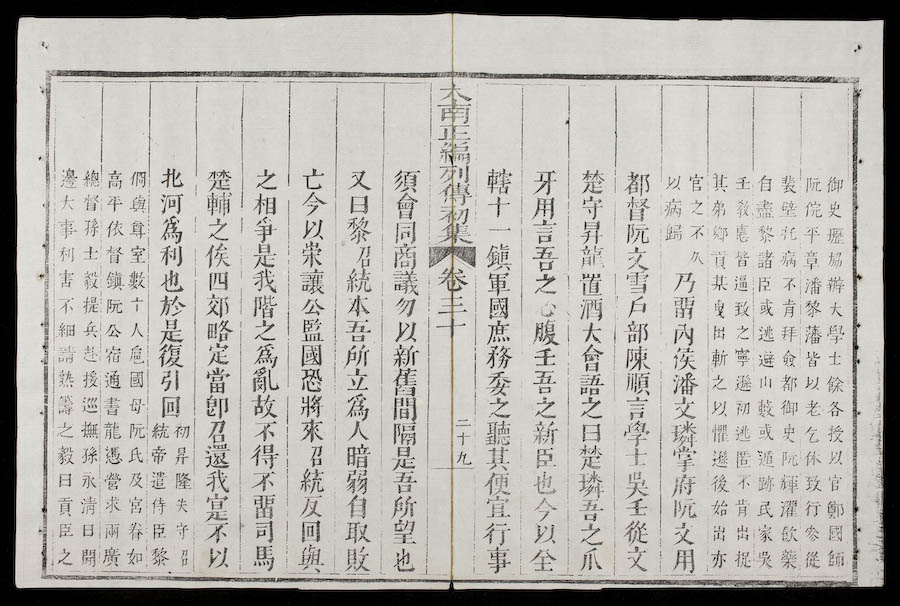 御史瓑協辦大學士餘各授以官鄭國師
阮俒平章潘黎藩皆以老乞休致行參從
裴壁托病不肯拜僉都御史阮輝濯飲藥
自盡黎諸臣或逃避山藪或遁跡民家吳
壬教慝皆逼致之寧遜初逃匿不肯出捉
其弟鄉貢其曳出斬之以懼遜後始出亦
官之不久
以病歸
乃畱內侯潘文璘掌府阮文用
都督阮文雪戶部陳順言學士吳壬從文
楚守昇龍置酒大會語之曰楚璘吾之爪
牙用言吾之心腹壬吾之新臣也今以全
轄十一鎮軍國庶務委之聽其便宜行事
大南正編列傳初集 卷三十 二十九
須會同商議勿以新舊間隔是吾所望也
又曰黎招統本吾所立爲人暗弱自取敗
亡今以崇讓公監國恐將來招統反回與
之相爭是我階之爲亂故不得不畱司馬
楚輔之俟四郊略定當卽召還我寔不以
北河爲利也於是復引回
初昇隆失守招
統帝遣侍臣黎
僩與尊室數十人扈國母阮氏及宮眷如
高平依督鎮阮公宿通書龍憑營求兩廣
總督孫士毅提兵赴援巡撫孫永清曰開
邊大事利害不細請熟籌之毅曰貢臣之